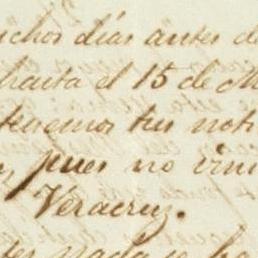 uchos días antes de
hasta el 15 de M
tenemos tus noti
pues no vini
Veracruz.
nada se ha